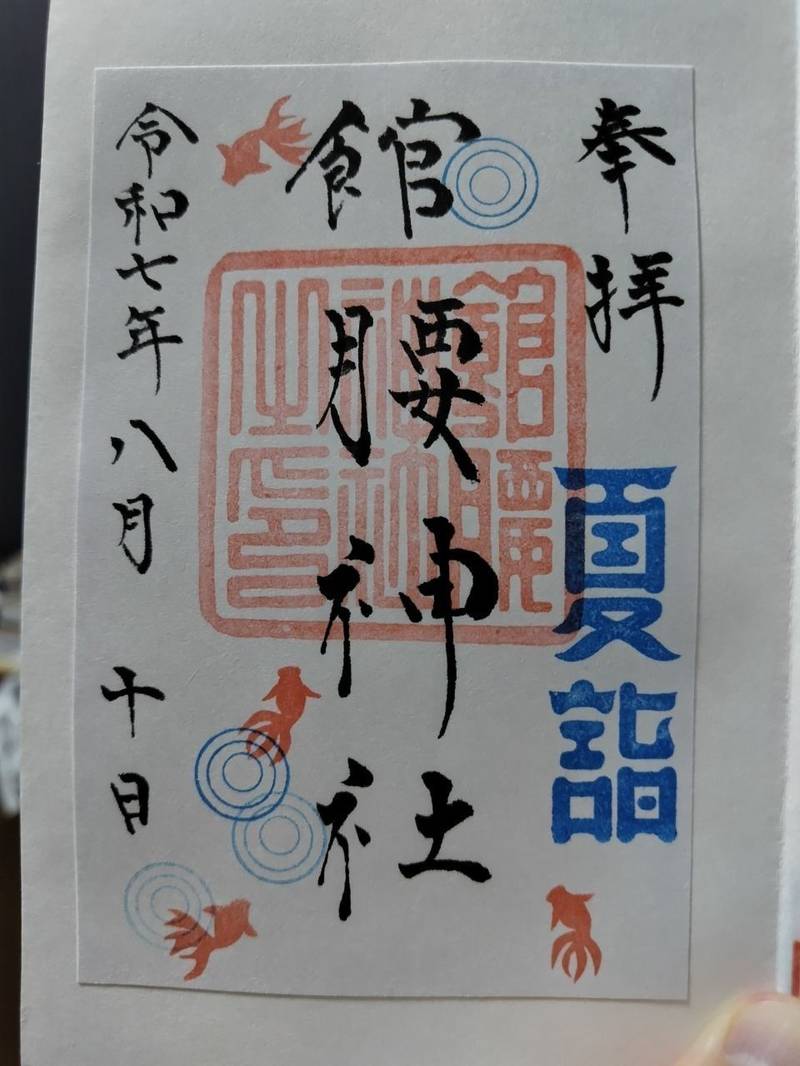 奉拝
夏詣
館腰神社
館腰神社之印
令和七年八月十日